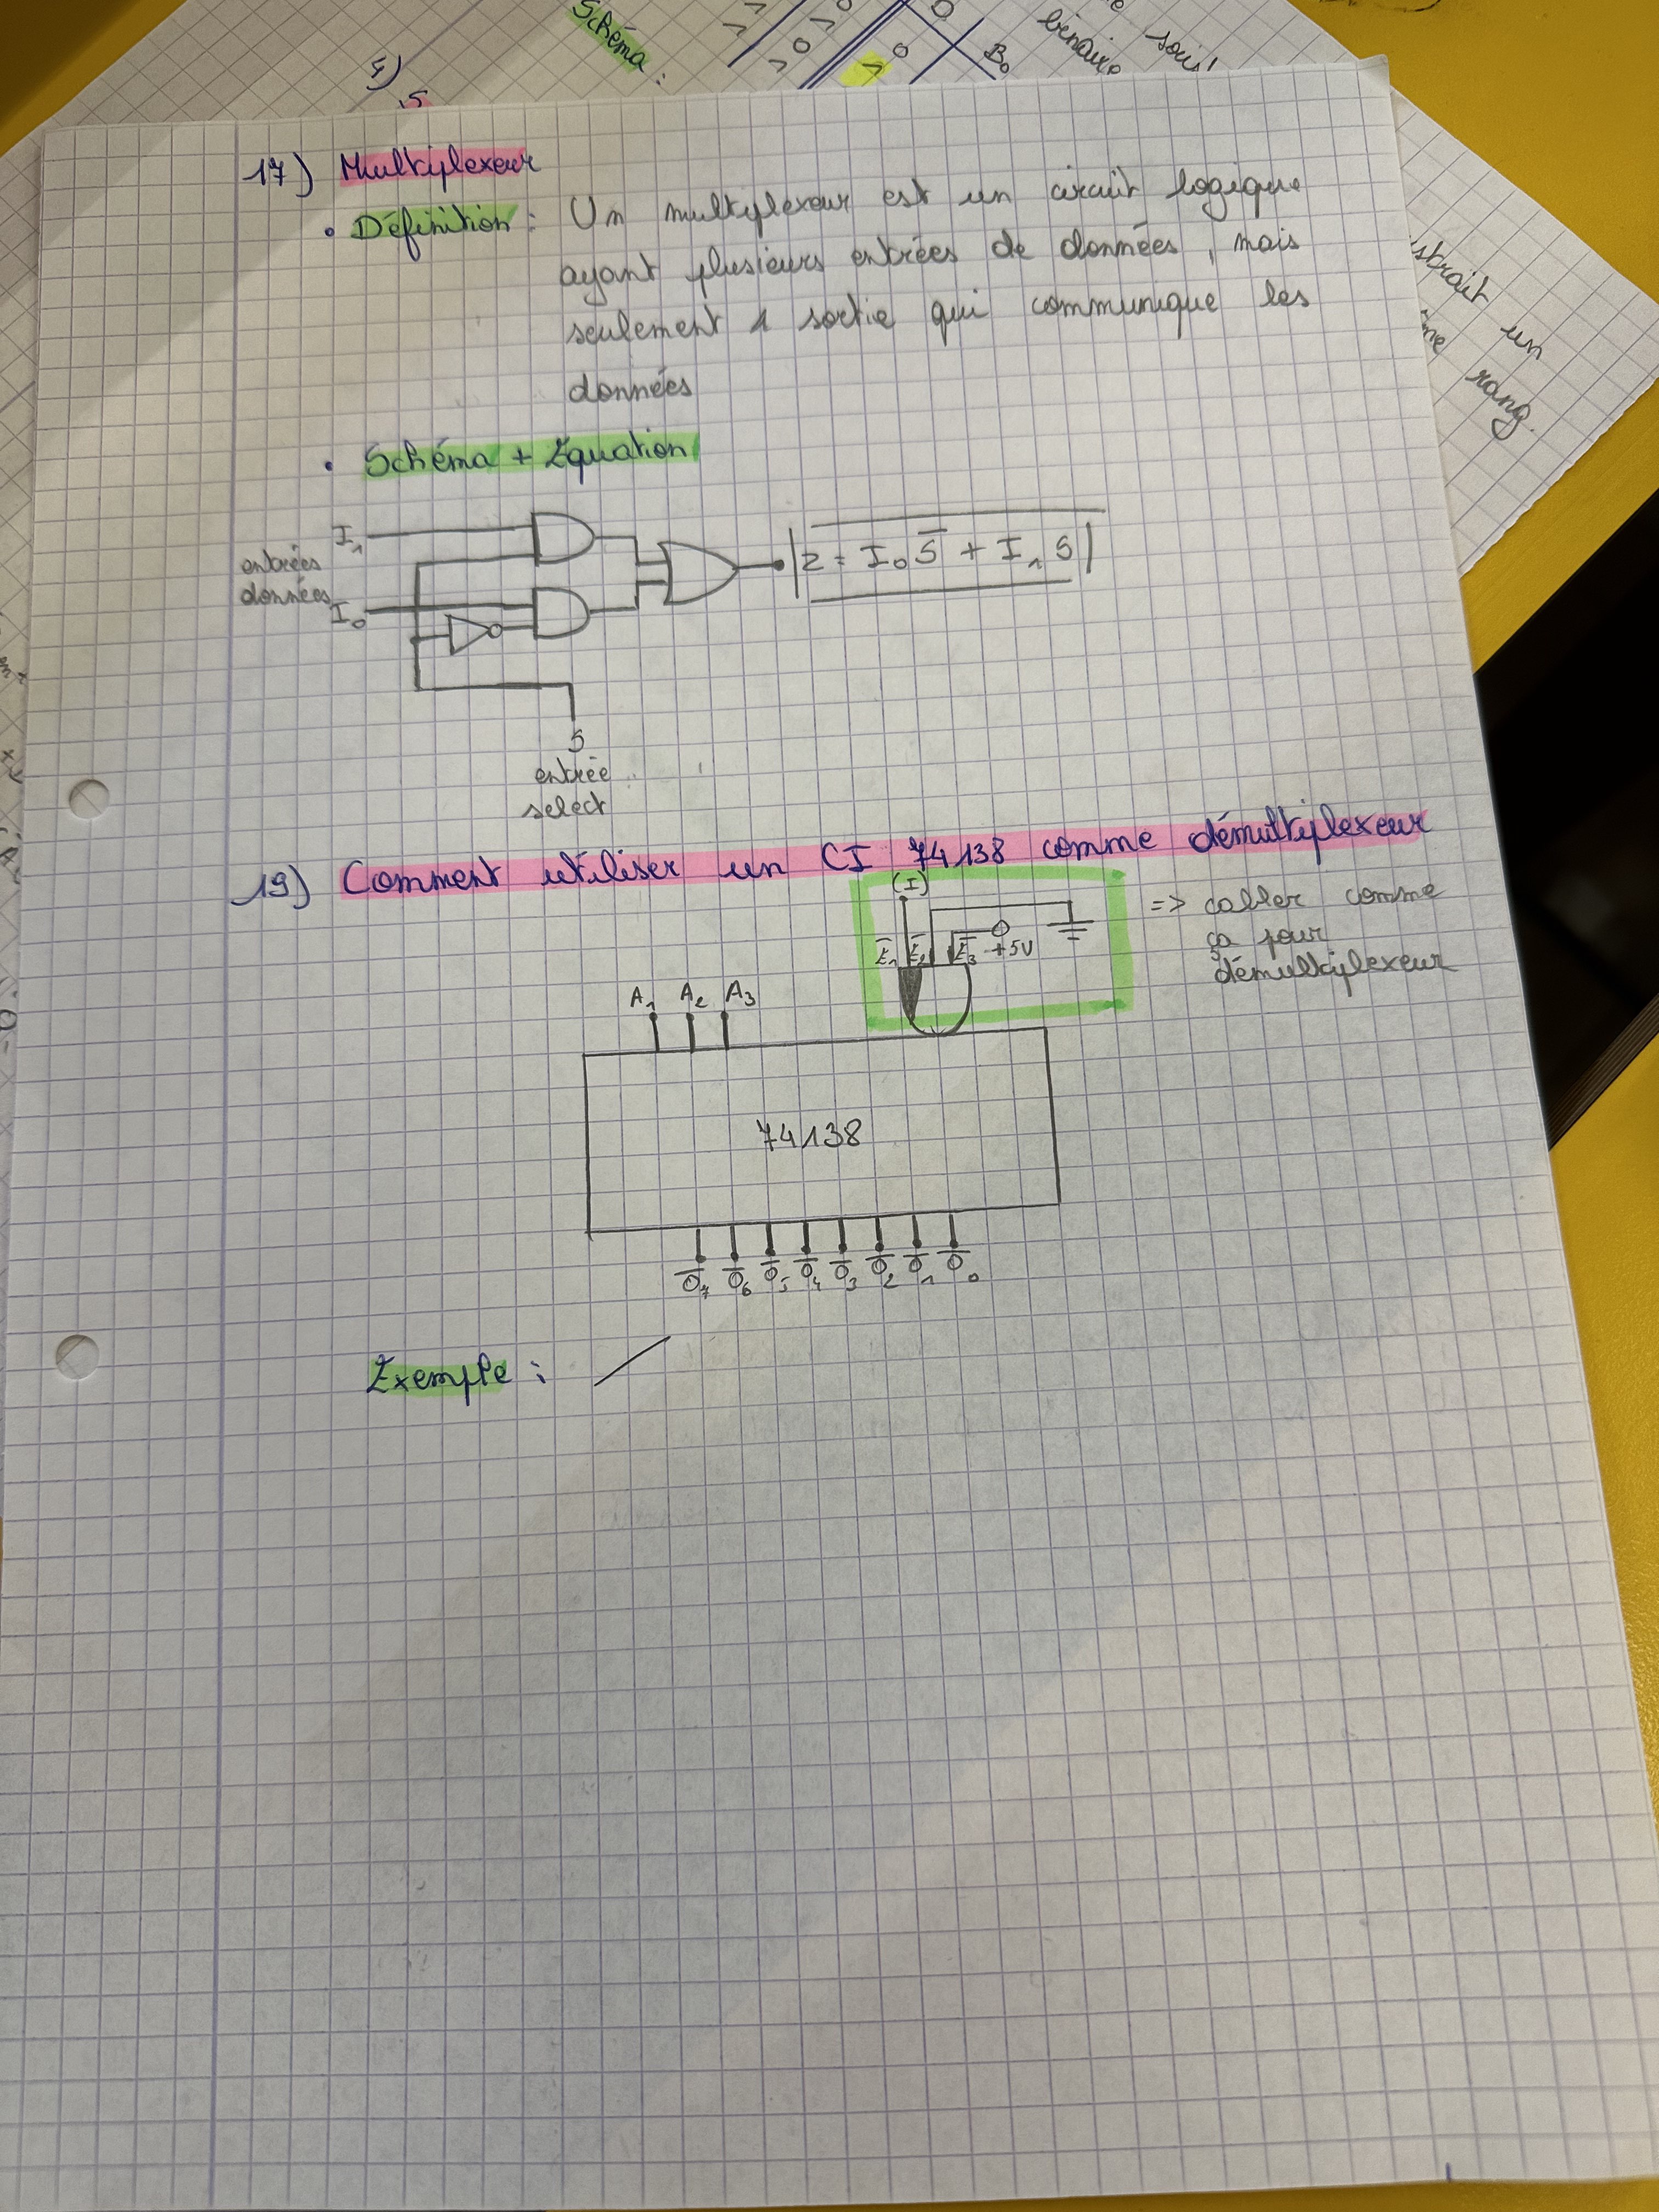 Schéma :
4)
B₀
binaire
soust
17) Multiplexeur
• Définition : Un multiplexeur est un circuit logique
ayant plusieurs entrées de données, mais
seulement 1 sortie qui communique les
données
un
rang.
• Schéma + Équation
I₁
entrées
données
I₀
z = I₀S̅ + I₁S
S
entrée
select
19) Comment utiliser un CI 74138 comme démultiplexeur
(I)
E̅₁ E̅₂ E̅₃ +5V
=> cabler comme
ça pour
démultiplexeur
A₁ A₂ A₃
74138
O̅₇ O̅₆ O̅₅ O̅₄ O̅₃ O̅₂ O̅₁ O̅₀
Exemple :